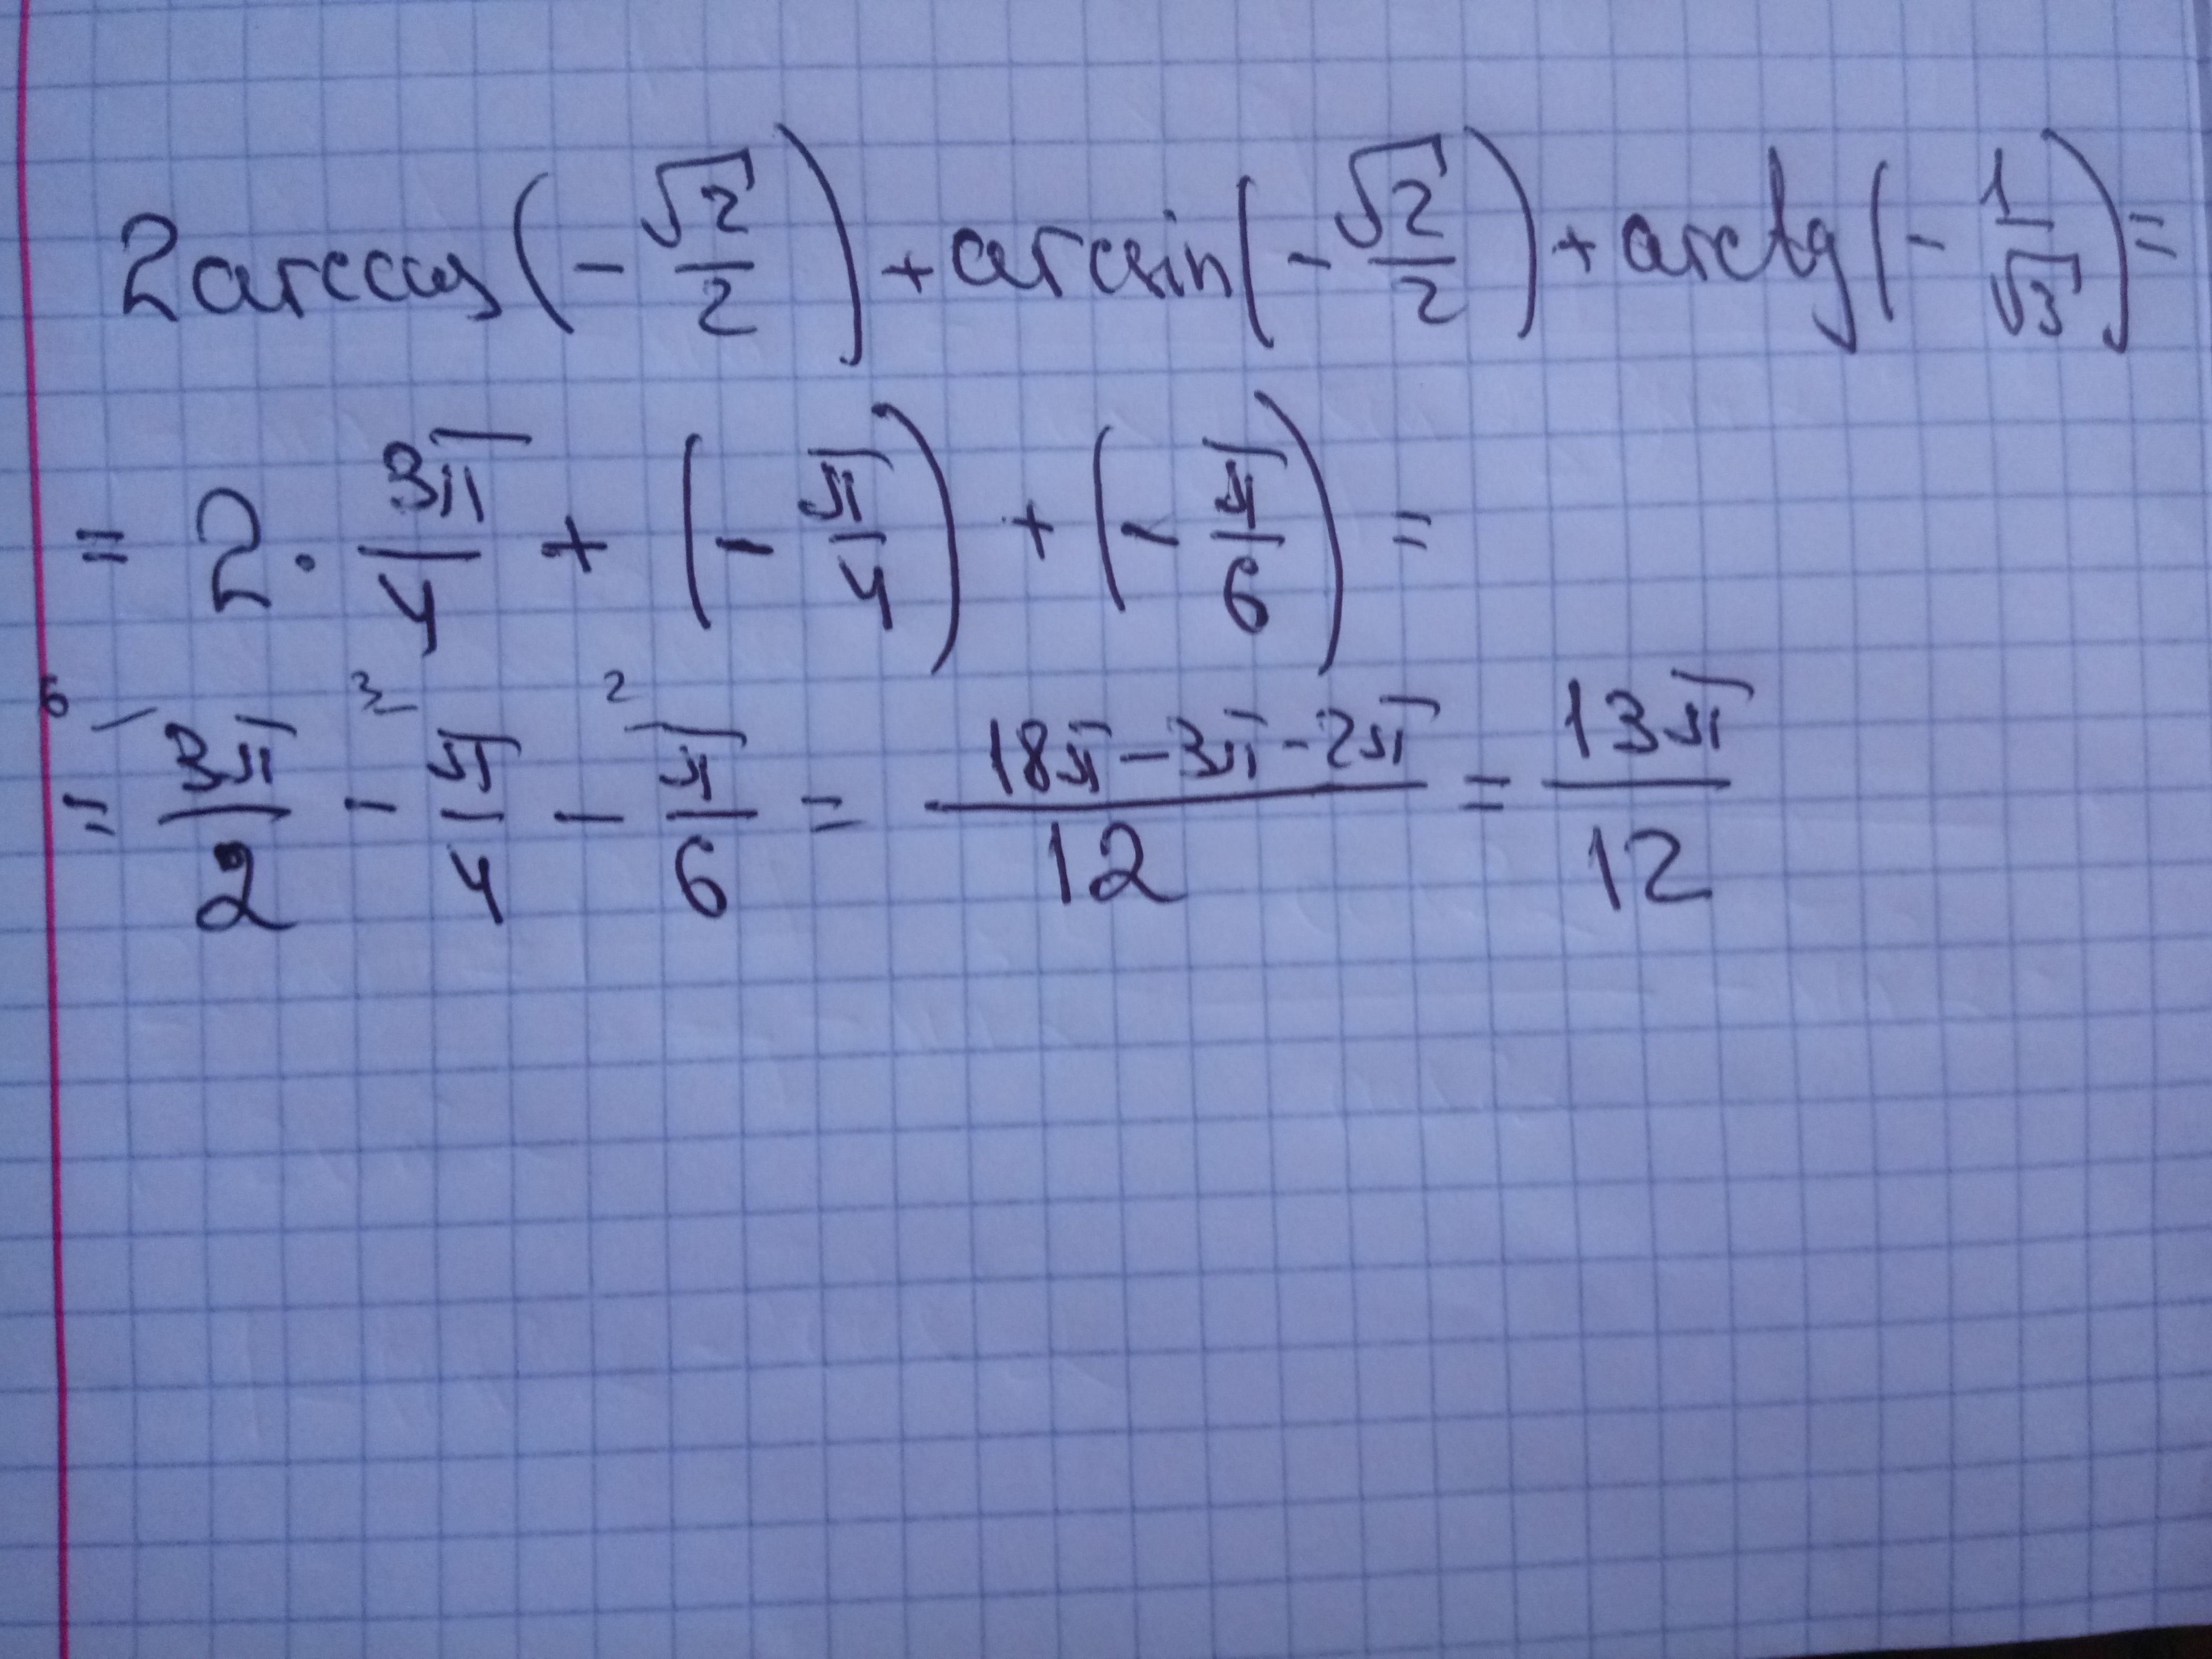 2arccos(-√2/2)+arcsin(-√2/2)+arctg(-1/√3)=
= 2·3π/4+(-π/4)+(-π/6)=
6 3 2
= 3π/2-π/4-π/6=(18π-3π-2π)/12=13π/12